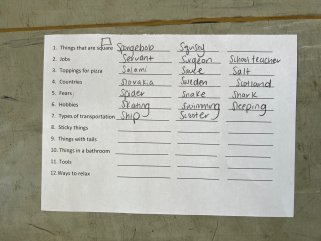 1. Things that are square Spongebob Sqnsoy
2. Jobs Servant Surgeon School teacher
3. Toppings for pizza Salami Sauce Salt
4. Countries Slovakia Sweden Scotland
5. Fears Spider Snake Shark
6. Hobbies Skating Swimming Sleeping
7. Types of transportation Ship Scooter
8. Sticky things
9. Things with tails
10. Things in a bathroom
11. Tools
12. Ways to relax